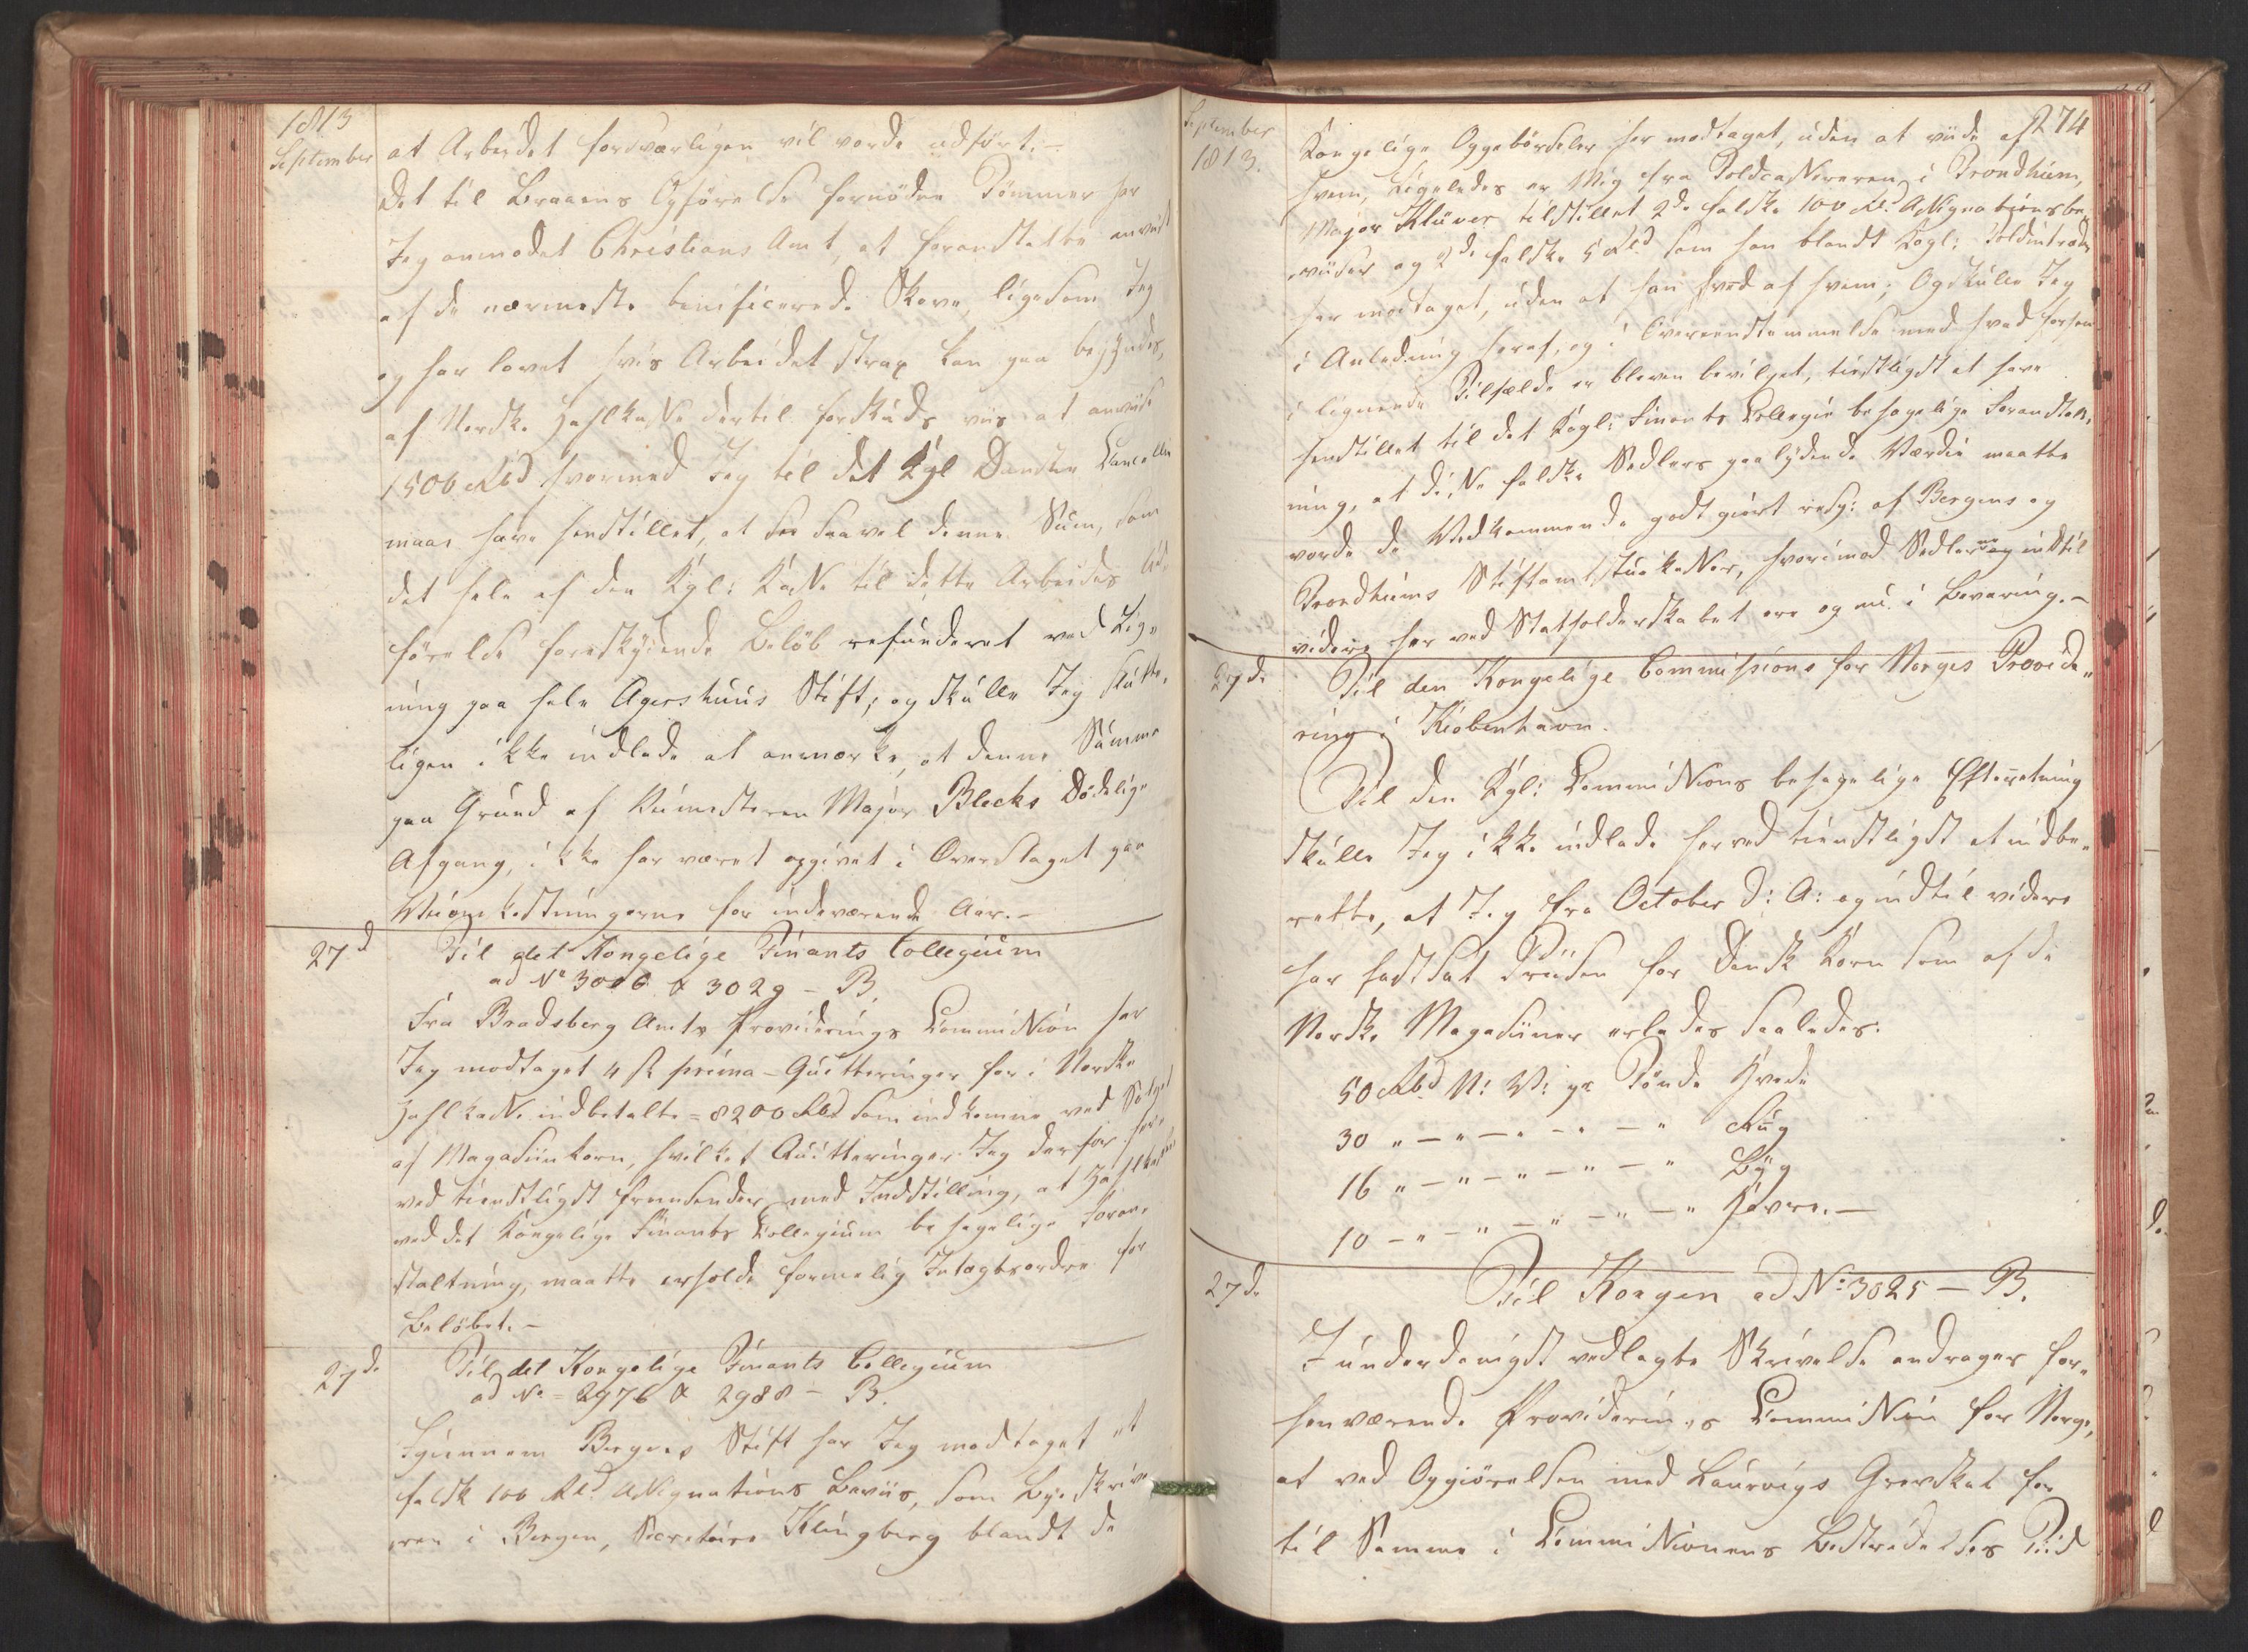 1813
September
at Arbeidet forsvarligen vil vorde udført.-
Det til Broaens Opførelse fornødne Tømmer har
Jeg anmodet Christians Amt, at foranstalte anviist
af de nærmeste benificerede Skove, ligesom Jeg
og har lovet hvis Arbeidet strax kan paa begyndes,
af Norske Zahlkasse dertil forskuds viis at anvise
1500 Rbd hvormed Jeg til det Kgl Danske Cancellie
maae have henstillet, at see saavel denne Sum, som
det hele af den Kgl: Kasse til dette Arbeides Ud-
førelse forskydende Beløb refunderet ved Lig-
ning paa hele Agershuus Stift; og skulle Jeg slutte-
ligen ikke undlade at anmærke, at denne Summa
paa Grund af Veimesteren Major Blecks Dødelige
Afgang, ikke har været opgivet i Overslaget paa
Veiomkostningerne for indeværende Aar.-
27d
Til det Kongelige Finants Collegium
ad No 3006 & 3029 - B.
Fra Bradsberg Amts Provideerings Commission har
Jeg modtaget 4 st prima-Quitteringer for i Norske
Zahlkasse indbetalte = 8200 Rbd som indkomne ved Salget
af Magasiinkorn, hvilket Quitteringer Jeg derfor her-
ved tienstligst fremsender med Indstilling, at Zahlkassen
ved det Kongelige Finants Collegium behagelige Foran-
staltning, maatte erholde formelig Indtægtsordre for
Beløbet.-
27de
Til det Kongelige Finants Collegium
ad No = 2976 & 2988 - B.
Igiennem Bergens Stift har Jeg modtaget et
falsk 100 Rd. Assignations Beviis, som Bye skrive-
ren i Bergen, Secretaire Klingberg blandt de
September
1813.
274
Kongelige Oppebørseler har modtaget, uden at viide af
hvem, Ligeledes er Mig fra Toldcasserereren i Trondhiem,
Major Klüver tilstillet 2de falske 100 Rd. Assignationsbe-
viiser og 2de falske 5 Rd som han blandt Kogl: Toldintrader
har modtaget, uden at han veed af hvem; Og skulle Jeg
i Anledning heraf, og i Overeenstemmelse med hvad forhen
i lignende Tilfælde er bleven bevilget, tienstligst at have
henstillet til det Kogl: Finants Collegie behagelige Foranstalt-
ning, at disse falske Sedlers paalydende Værdie maatte
vorde de Vedkommende godtgiort resp: af Bergens og
Trondhiems Stiftamtstuekasser, hvorimod Sedlerne og indtil
videre her ved Statholderskabet ere og nu i Bevaring.-
27de
Til den Kongelige Commissions for Norges Provide-
ring i Kiøbenhavn.
Til den Kgl: Commissions behagelige Efterretning
skulle Jeg ikke undlade herved tienstligst at indbe-
rette, at Jeg fra October d: A: og indtil videre
har fastsat Priisen for Dansk Korn som af de
Norske Magasiner erlades saaledes:
50 Rbd N: V: pr Tønde Hvede
30 " - " - " - " - " Rug
16 " - " - " - " - " Byg
10 - " - " - " - " - " Havre.-
27de
Til Kongen ad No: 3025 - B.
I underdanigst vedlagte Skrivelse andrager for-
henværende Provideerings Commission for Norge,
at ved Opgiørelsen med Laurvigs Grevskab for
til Samme i Commissionens Bestridelses Tiid